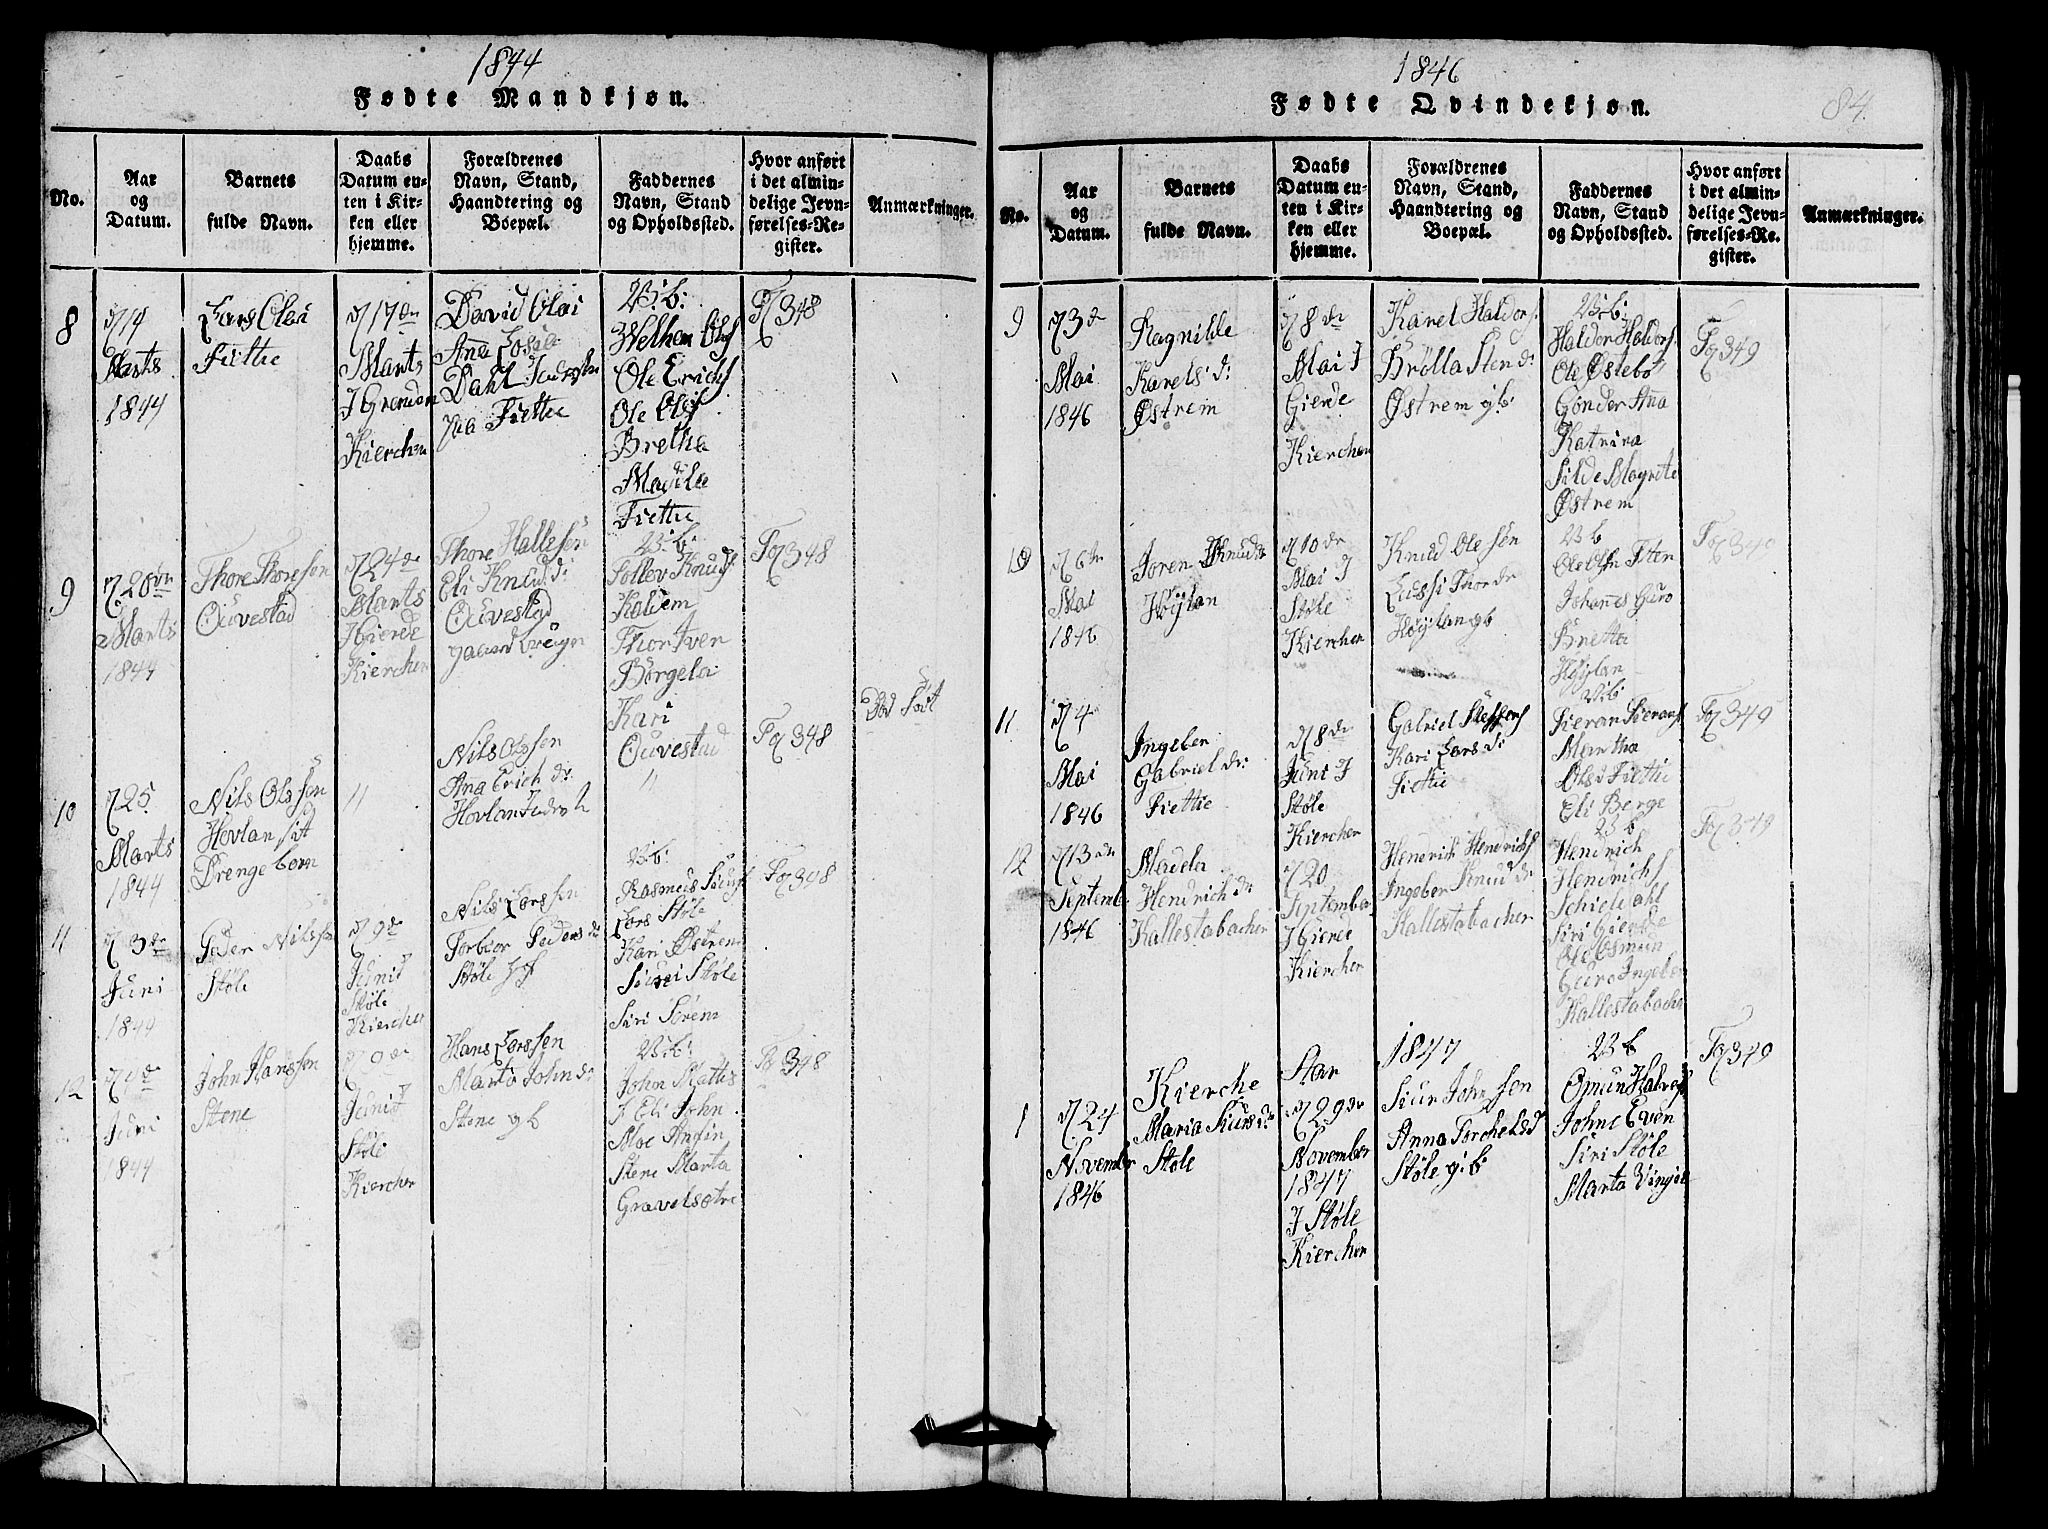 1844
Fødte Mandkjøn.
No.
Aar
og
Datum.
Barnets
fulde Navn.
Daabs
Datum en-
ten i Kir-
ken eller
hjemme.
Forældrenes
Navn, Stand,
Haandtering og
Boepæl.
Faddernes
Navn, Stand
og Opholdssted.
Hvor anført
i det almin-
delige Jevn-
førelses-Re-
gister.
Anmærkninger.
8
Marts
1844
Lars Olai
Fiettie
17de
Marts
I Grendon
Kierchen
David Olai
Dahl
Fiettie
V:b:
Welhem Ols
Ole Erichs
Ole Ols
Bretha
Madile
Fiettie
Fo 348
9
Marts
1844
Thore Thoresen
Ouvestad
24de
Marts
I Gierde
Kierchen
Thore Hallesen
Eli Knud d:
Ouvestad
V:b:
Sollev Knuds
Kaldem
Thor Tver
Børgela
Kari
Ouvestad
Fo 348
10
25
Marts
1844
Nils Olssen
Hovlan sit
Drengebarn
11
Nils Olssen
Ana Erich d:
Hovlan
11
Fo 348
Død Føt
11
3de
Juni
1844
Peder Nilssen
Støle
9de
Juni I
Støle
Kierchen
Nils Larssen
Torbor Peders d
Støle
V:b:
Rasmus Siurs
Lars Støle
Kari Østrem
Siuri Støle
Siri Sørem
Fo 348
12
Juni
1844
John Hanssen
Stene
Juni I
Støle
Kierchen
Hans Larssen
Marta John d:
Stene g b
V:b:
John Mattis
I Eli John
Moe Anfin
Stene Marta
Gravelsætre
Fo 348
1846
Fødte Qvindekjøn.
84.
No.
Aar
og
Datum.
Barnets
fulde Navn.
Daabs
Datum en-
ten i Kir-
ken eller
hjemme.
Forældrenes
Navn, Stand,
Haandtering og
Boepæl.
Faddernes
Navn, Stand
og Opholdssted.
Hvor anført
i det almin-
delige Jevn-
førelses-Re-
gister.
Anmærkninger.
9
3de
Mai
1846
Ragnilde
Karels d:
Østrem
8de
Mai I
Gierde
Kierchen
Karel Haldors
Brølla Sten d:
Østrem g b:
V:b:
Haldor Haldors
Ole Østebø
Gonder Ana
Katrina
Silde Magrete
Østrem
Fo 349
10
6te
Mai
1846
Joren Knud d
Høylan
10de
Mai I
Støle
Kierchen
Knud Olesen
Lussi Thor d
Høylan g b
V b
Ole Olsen
Johannes Guro
Bretta
Høylan
Fo 349
11
4
Mai
1846
Ingeber
Gabriel d:
Fiettie
8de
Juni I
Støle
Kierchen
Gabriel Steffens
Kari Lars d:
Fiettie
V:b:
Sieran Sierans
Martha
Olsd Fiettie
Eli Berge
Fo 349
12
13de
Septemb.
1846
Madela
Hendrich d:
Kallestabacken
20
September
I Gierde
Kierchen
Hendrich Hendrichs
Ingeber Knud d:
Kallestabacken
V b
Hendrich
Hendrichs
Schieldahl
Siri Gierde
Ole Osmun
Guro Ingeber
Kallestabacken
Fo 349
Kierche
Aar
1847
1
24
November
1846
Maria Siurs d:
Støle
29de
November
1847
I Støle
Kierchen
Siur Johnsen
Anna Torchels d
Støle g: b:
V b
Omun Halvors
Johne Even
Siri Støle
Marta Vingie
Fo 349